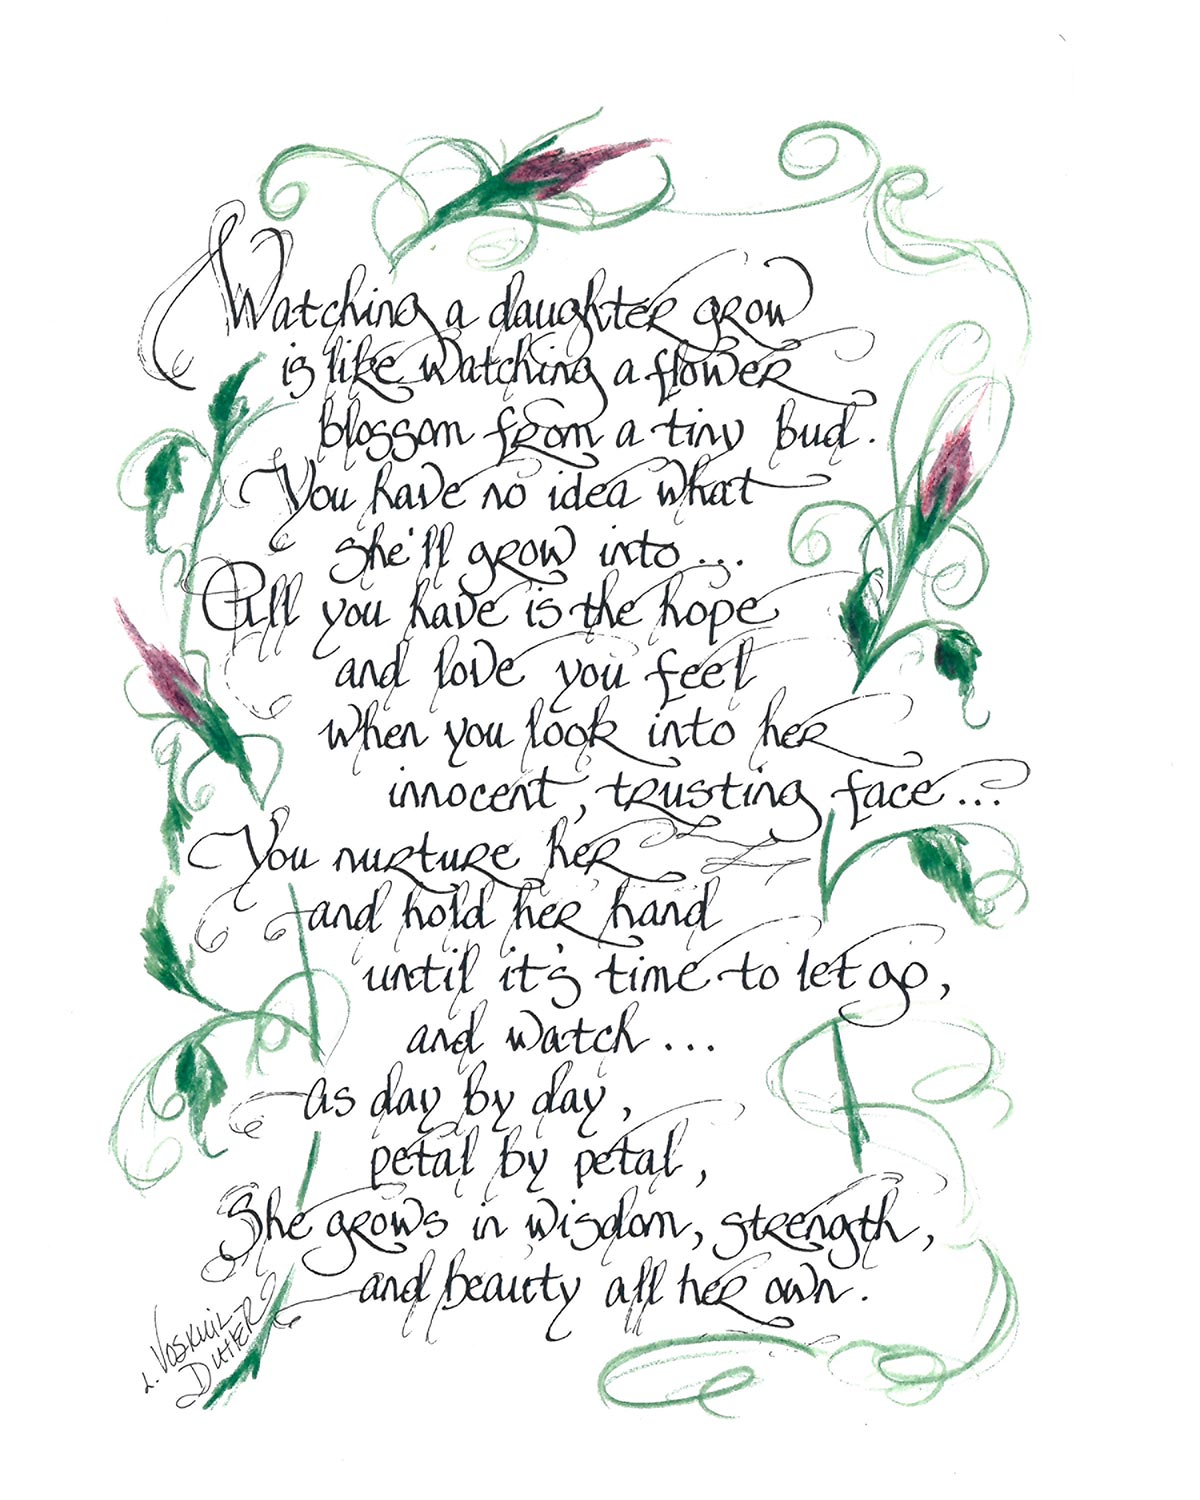 Watching a daughter grow
is like watching a flower
blossom from a tiny bud.
You have no idea what
she'll grow into...
All you have is the hope
and love you feel
when you look into her
innocent, trusting face...
You nurture her
and hold her hand
until it's time to let go,
and watch...
as day by day,
petal by petal,
She grows in wisdom, strength,
and beauty all her own.
L. VOSKUIL
DUTTER